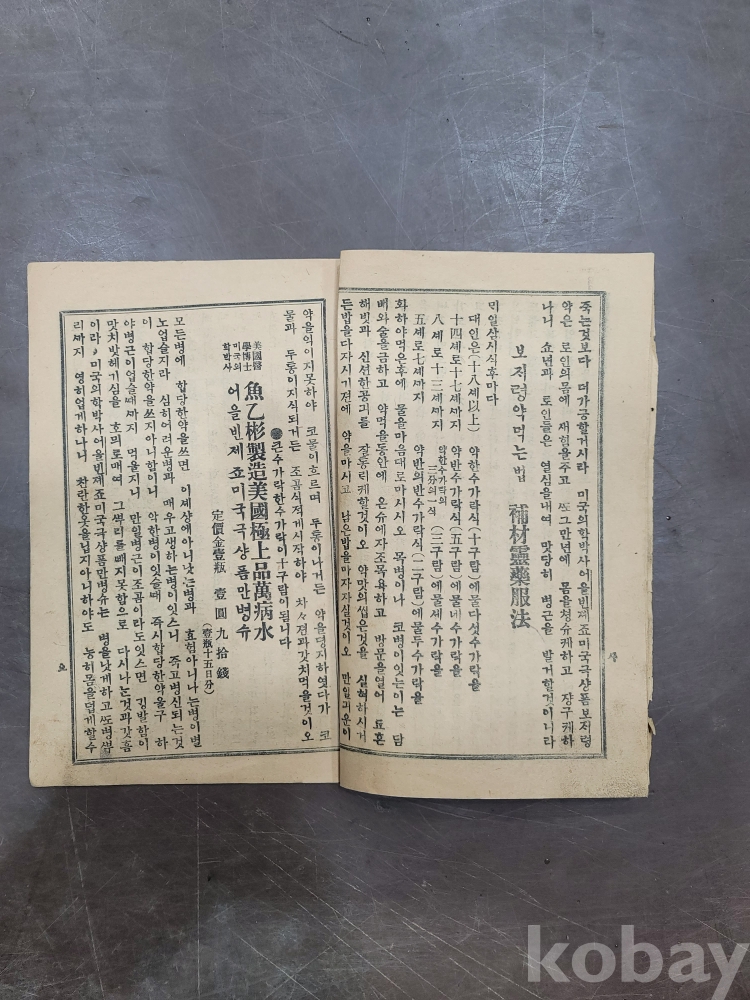 죽는것보다 더가긍할거시라 미국의학박사어을빈제죠미국극샹픔보지령
약은 로인의몸에 새힘을주고 ᄯᅩ그만년에 몸을청슈케하고 쟝구케하
나니 쇼년과 로인들은 열심을내여 맛당히 병근을 발거할것이니라
보지령약먹는법 補材靈藥服法
ᄆᆡ일삼시식후마다
대인은(十八셰以上) 약한수가락식(十구람)에물다섯수가락을
十四셰로十七셰까지 약반수가락식(五구람)에물네수가락을
八셰로十三셰까지 약한수가락의三分의一식(三구람)에물세수가락을
五셰로七셰까지 약반의반수가락식(二구람)에물두수가락을
화하야먹은후에 물을마음대로마시시오 목병이나 코병이잇는이는 담
배와술을금하고 약먹을동안에 온슈에자조목욕하고 방문을열어 됴흔
해빗과 신션한공긔를 잘통리케할것이오 약맛의씁은것을 실혀하시거
든밥을다자시기전에 약을마시고 남은밥을마자자실것이오 만일긔운이
약을익이지못하야 코물이흐르며 두통이나거든 약을뎡지하엿다가 코
물과 두통이지식되거든 조곰식적게시작하야 차々젼과갓치먹을것이오
큰수가락한수가락이十구람이됩니다
美國醫學博士 미국의학박사 魚乙彬製造美國極上品萬病水
어을빈제 죠미국극샹픔만병슈
定價金壹瓶 壹圓九拾錢 (壹瓶十五日分)
모든병에 합당한약을쓰면 이셰샹에아니낫는병과 효험아니나는병이별
노업슬지라 심히어려운병과 매우고생하는병이잇스니 죽고병신되는것
이 합당한약을쓰지아니함이니 약한병이잇슬때 즉시합당한약을구하
야병근이업슬때까지 먹을지니 만일병근이조곰이라도잇스면 김발함이
맛치밧헤기심을 호믜로매여 그뿌리를빼지못함으로 다시나는것과갓흠
이라 미국의학박사어을빈제죠미국극샹픔만병슈는 병을낫게하고ᄯᅩ병뿌
리까지 영히업게하나니 찬란한옷을닙지아니하야도 능히몸을덥게할수